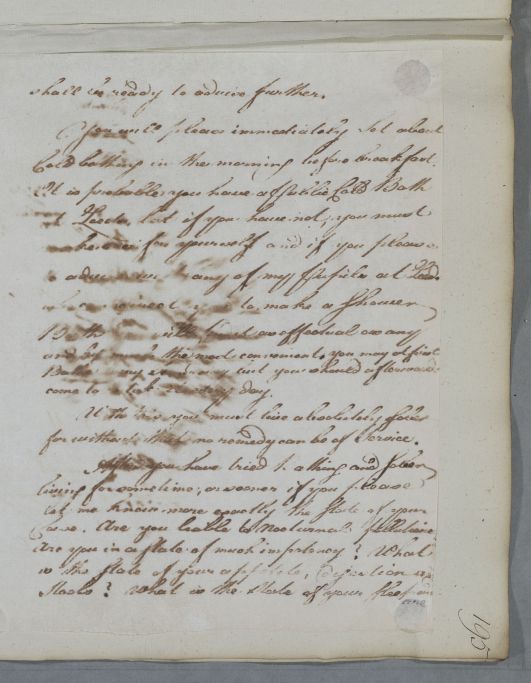 shall be ready to advise further.
You will please immediately Set about
Cold bathing in the morning before breakfast.
It is probable you have a Publick Cold Bath
at Leeds, but if you have not, you must
for yourself and if you please
to any of my Pupils at Leeds
to make a Shower
Bath as effectual as any
and by much the most convenient, you may at first
Bathe every day but you should afterwards
come to day.
With this you must live absolutely sober
for without this no remedy can be of Service.
After you have tried Bathing and Sober
living for sometime, or sooner if you please
let me know more exactly the State of your
Case. Are you liable to Nocturnal Pollutions
Are you in a State of much impotency? What
is the State of your appetite, digestion and
Stools? What is the State of your Sleep and
are
195